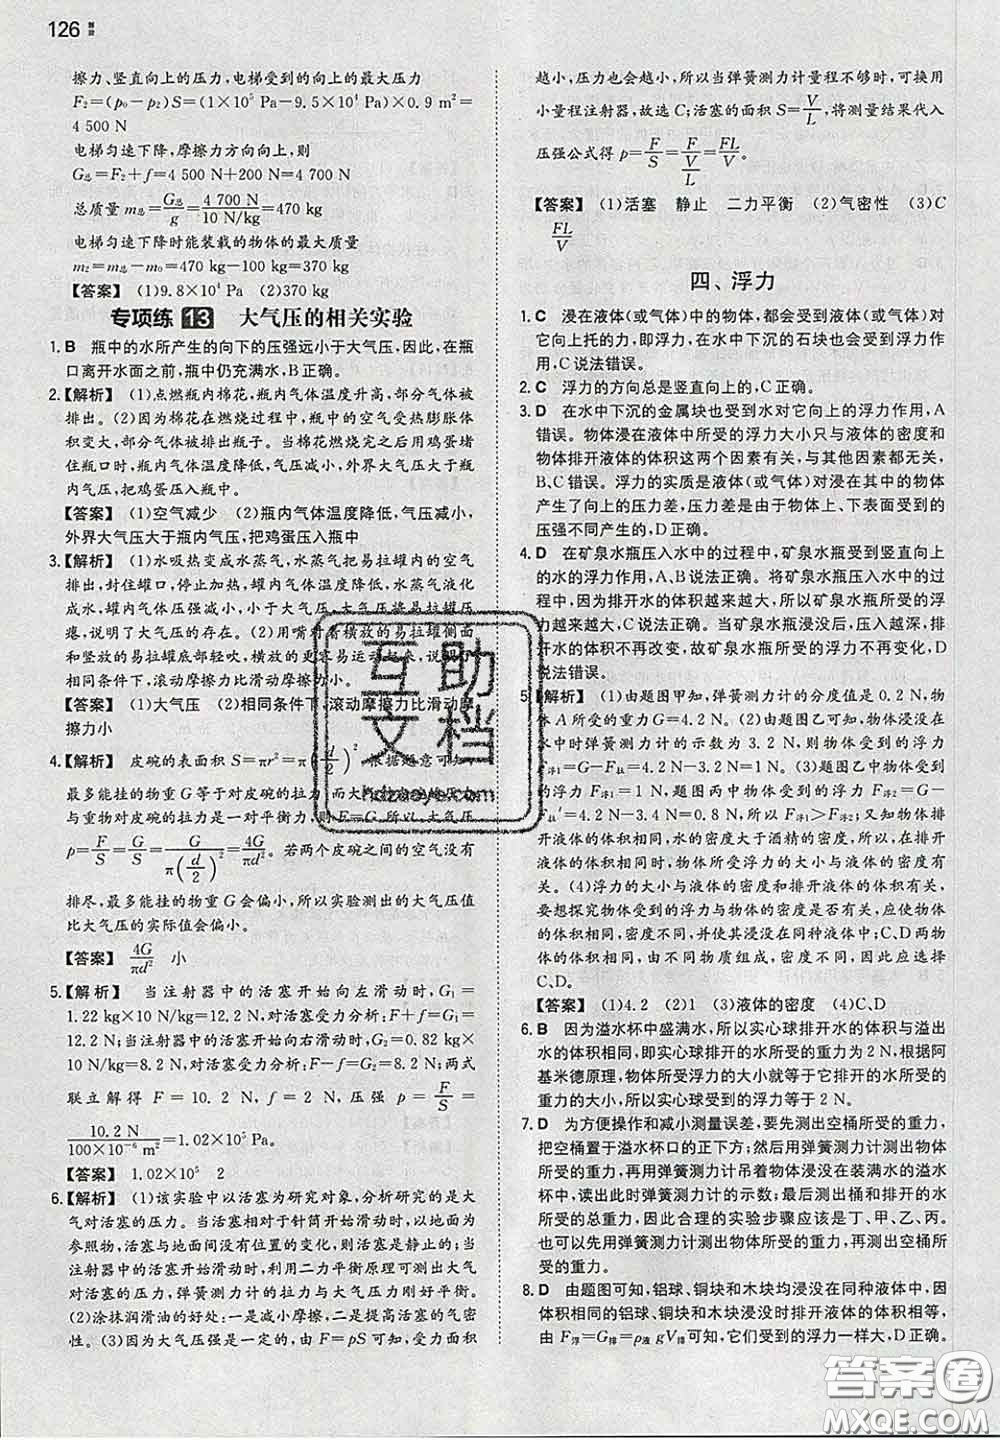 126
擦力、竖直向上的压力,电梯受到的向上的最大压力
F₂=(p₀-p₂)S=(1×10⁵ Pa-9.5×10⁴ Pa)×0.9 m²=
4 500 N
电梯匀速下降,摩擦力方向向上,则
G总=F₂+f=4 500 N+200 N=4 700 N
总质量 m总=G总/g=4 700 N/10 N/kg=470 kg
电梯匀速下降时能装载的物体的最大质量
m₂=m总-m₀=470 kg-100 kg=370 kg
【答案】 (1)9.8×10⁴ Pa (2)370 kg
专项练 13 大气压的相关实验
1. B 瓶中的水所产生的向下的压强远小于大气压,因此,在瓶
口离开水面之前,瓶中仍充满水,B正确。
2.【解析】 (1)点燃瓶内棉花,瓶内气体温度升高,部分气体被
排出。(2)因为棉花在燃烧过程中,瓶中的空气受热膨胀体
积变大,部分气体被排出瓶子。当棉花燃烧完之后用鸡蛋堵
住瓶口时,瓶内气体温度降低,气压减小,外界大气压大于瓶
内气压,把鸡蛋压入瓶中。
【答案】 (1)空气减少 (2)瓶内气体温度降低,气压减小,
外界大气压大于瓶内气压,把鸡蛋压入瓶中
3.【解析】 (1)水吸热变成水蒸气,水蒸气把易拉罐内的空气
排出,封住罐口,停止加热,罐内气体温度降低,水蒸气液化
成水,罐内气体压强减小,小于大气压,大气压将易拉罐压
瘪,说明了大气压的存在。(2)用嘴对着横放的易拉罐侧面
和竖放的易拉罐底部轻吹,横放的更容易运动起来,说明了
相同条件下,滚动摩擦力比滑动摩擦力小。
【答案】 (1)大气压 (2)相同条件下,滚动摩擦力比滑动摩
擦力小
4.【解析】 皮碗的表面积 S=πr²=π(d/2)²,根据题意可知,
最多能挂的物重G等于对皮碗的拉力,而大气压
与重物对皮碗的拉力是一对平衡力,即F=G,所以,大气压
p=F/S=G/S=G/π(d/2)²=4G/πd²。若两个皮碗之间的空气没有
排尽,最多能挂的物重G会偏小,所以实验测出的大气压值
比大气压的实际值会偏小。
【答案】 4G/πd² 小
5.【解析】 当注射器中的活塞开始向左滑动时,G₁=
1.22 kg×10 N/kg=12.2 N,对活塞受力分析:F+f=G₁=
12.2 N;当注射器中的活塞开始向右滑动时,G₂=0.82 kg×
10 N/kg=8.2 N,对活塞受力分析:F-f=G₂=8.2 N;两式
联立解得 F=10.2 N,则 f=2 N,压强 p=F/S=
10.2 N/100×10⁻⁶ m²=1.02×10⁵ Pa。
【答案】 1.02×10⁵ 2
6.【解析】 (1)该实验中以活塞为研究对象,分析研究的是大
气对活塞的压力。当活塞相对于针筒开始滑动时,以地面为
参照物,活塞与地面间没有位置的变化,则活塞是静止的;当
活塞处于静止或匀速直线运动状态时,利用二力平衡原理可测得大
气对活塞的压力,弹簧测力计的拉力与大气压力刚好平衡。
(2)涂抹润滑油的好处:一是减小摩擦,二是提高活塞的气密
性。(3)因为大气压强是一定的,由F=pS可知,受力面积
越小,压力也会越小,所以当弹簧测力计量程不够时,可换用
小量程注射器,故选C;活塞的面积 S=V/L,将测量结果代入
压强公式得 p=F/S=F/(V/L)=FL/V。
【答案】 (1)活塞 静止 二力平衡 (2)气密性 (3)C
FL/V
四、浮力
1. C 浸在液体(或气体)中的物体,都会受到液体(或气体)对
它向上托的力,即浮力,在水中下沉的石块也受到浮力作
用,C说法错误。
2. C 浮力的方向总是竖直向上的,C正确。
3. D 在水中下沉的金属块也受到水对它向上的浮力作用,A
错误。物体浸在液体中所受的浮力大小只与液体的密度和
物体排开液体的体积这两个因素有关,与其他因素都无关,
B、C错误。浮力的实质是液体(或气体)对浸在其中的物体
产生了向上的压力差,压力差是由于物体上、下表面受到的
压强不同产生的,D正确。
4. D 在矿泉水瓶压入水中的过程中,矿泉水瓶受到竖直向上
的水的浮力作用,A、B说法正确。将矿泉水瓶压入水中的过
程中,因为排开水的体积越来越大,所以矿泉水瓶所受的浮
力越来越大,C说法正确。当矿泉水瓶浸没后,压入越深,排
开水的体积不再改变,故矿泉水瓶所受的浮力不再变化,D
说法错误。
5.【解析】 (1)由题图甲知,弹簧测力计的分度值是0.2 N,物
体A所受的重力G=4.2 N。(2)由题图乙可知,物体浸没在
水中时弹簧测力计的示数为3.2 N,则物体受到的浮力
F浮₁=G-F拉=4.2 N-3.2 N=1 N。(3)题图乙中物体受到
的浮力F浮₁=1 N,题图丙中物体受到的浮力F浮₂=G-
F拉′=4.2 N-3.4 N=0.8 N,所以F浮₁>F浮₂;又知物体排
开液体的体积相同,水的密度大于酒精的密度,则结合题图
乙、丙可知,物体所受浮力的大小与液体的密度有
关。(4)浮力的大小与液体的密度和排开液体的体积有关,
要想探究物体受到的浮力与物体的密度是否有关,应使物体
的体积相同,并且浸没在同种液体中,
由不同物质组成,因此应选择
C、D。
【答案】 (1)4.2 (2)1 (3)液体的密度 (4)C、D
6. B 因为溢水杯中盛满水,所以实心球排开水的体积与溢出
水的体积相同,即实心球排开的水所受的重力为2 N。根据阿
基米德原理,物体所受浮力的大小就等于它排开的水所受的
重力大小,所以实心球受到的浮力等于2 N。
7. D 为方便操作和减小测量误差,要先测出空桶所受的重力,
把空桶置于溢水杯口的正下方;然后用弹簧测力计测出物体
所受的重力,再用弹簧测力计吊着物体浸没在装满水的溢水
杯中,读出此时弹簧测力计的示数;最后测出桶和排开的水
所受的总重力,因此合理的实验步骤应该是丁、甲、乙、丙。
也可以先用弹簧测力计测出物体所受的重力,再测出空桶所
受的重力。
8. D 由题图可知,铝球、铜块和木块均浸没在同种液体中,因
体积相同的铝球、铜块和木块浸没时排开液体的体积相等,
由F浮=G排=ρ液gV排可知,它们受到的浮力一样大,D正确。
互助
文档
hdzuoye.com
答案圈
MXQE.COM